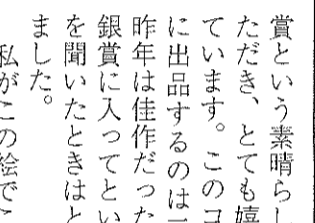 賞という素晴らし
ただき、とても嬉
ています。このコ
に出品するのは
昨年は佳作だった
銀賞に入ってとい
を聞いたときはと
ました。
私がこの絵でこ